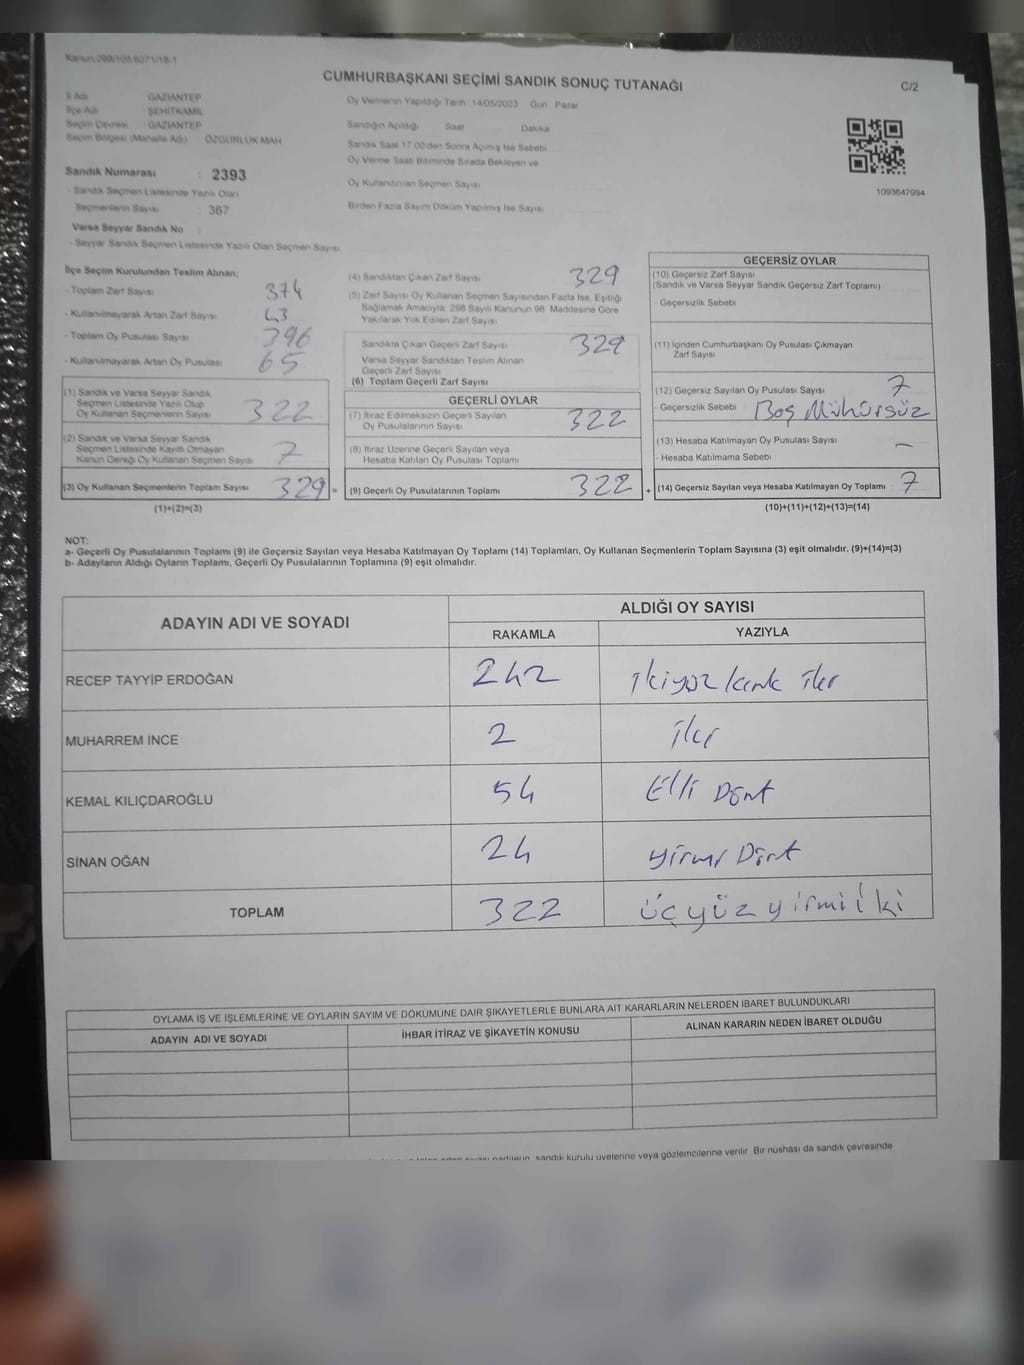 Kanun:298/105.6271/18-1
CUMHURBAŞKANI SEÇİMİ SANDIK SONUÇ TUTANAĞI
C/2
İl Adı : GAZİANTEP
İlçe Adı : ŞEHİTKAMİL
Seçim Çevresi : GAZİANTEP
Seçim Bölgesi (Mahalle Adı) : ÖZGÜRLÜK MAH
Sandık Numarası : 2393
- Sandık Seçmen Listesinde Yazılı Olan
Seçmenlerin Sayısı : 367
Varsa Seyyar Sandık No :
- Seyyar Sandık Seçmen Listesinde Yazılı Olan Seçmen Sayısı
Oy Vermenin Yapıldığı Tarih : 14/05/2023 Gün : Pazar
Sandığın Açıldığı Saat Dakika
Sandık Saat 17.00'den Sonra Açılmış İse Sebebi
Oy Verme Saati Bitiminde Sırada Bekleyen ve
Oy Kullandırılan Seçmen Sayısı
Birden Fazla Sayım Döküm Yapılmış İse Sayısı
1093647994
İlçe Seçim Kurulundan Teslim Alınan;
- Toplam Zarf Sayısı 374
- Kullanılmayarak Artan Zarf Sayısı 43
- Toplam Oy Pusulası Sayısı 396
- Kullanılmayarak Artan Oy Pusulası 65
(1) Sandık ve Varsa Seyyar Sandık
Seçmen Listesinde Yazılı Olup
Oy Kullanan Seçmenlerin Sayısı 322
(2) Sandık ve Varsa Seyyar Sandık
Seçmen Listesinde Kayıtlı Olmayan
Kanun Gereği Oy Kullanan Seçmen Sayısı 7
(3) Oy Kullanan Seçmenlerin Toplam Sayısı 329 =
(1)+(2)=(3)
(4) Sandıktan Çıkan Zarf Sayısı 329
(5) Zarf Sayısı Oy Kullanan Seçmen Sayısından Fazla İse, Eşitliği
Sağlamak Amacıyla, 298 Sayılı Kanunun 98. Maddesine Göre
Yakılarak Yok Edilen Zarf Sayısı
Sandıkta Çıkan Geçerli Zarf Sayısı 329
Varsa Seyyar Sandıktan Teslim Alınan
Geçerli Zarf Sayısı
(6) Toplam Geçerli Zarf Sayısı
GEÇERLİ OYLAR
(7) İtiraz Edilmeksizin Geçerli Sayılan
Oy Pusulalarının Sayısı 322
(8) İtiraz Üzerine Geçerli Sayılan veya
Hesaba Katılan Oy Pusulası Toplamı
(9) Geçerli Oy Pusulalarının Toplamı 322 +
GEÇERSİZ OYLAR
(10) Geçersiz Zarf Sayısı
(Sandık ve Varsa Seyyar Sandık Geçersiz Zarf Toplamı)
- Geçersizlik Sebebi
(11) İçinden Cumhurbaşkanı Oy Pusulası Çıkmayan
Zarf Sayısı
(12) Geçersiz Sayılan Oy Pusulası Sayısı 7
- Geçersizlik Sebebi Boş Mühürsüz
(13) Hesaba Katılmayan Oy Pusulası Sayısı -
- Hesaba Katılmama Sebebi
(14) Geçersiz Sayılan veya Hesaba Katılmayan Oy Toplamı 7
(10)+(11)+(12)+(13)=(14)
NOT:
a- Geçerli Oy Pusulalarının Toplamı (9) ile Geçersiz Sayılan veya Hesaba Katılmayan Oy Toplamı (14) Toplamları, Oy Kullanan Seçmenlerin Toplam Sayısına (3) eşit olmalıdır. (9)+(14)=(3)
b- Adayların Aldığı Oyların Toplamı, Geçerli Oy Pusulalarının Toplamına (9) eşit olmalıdır.
ADAYIN ADI VE SOYADI
ALDIĞI OY SAYISI
RAKAMLA YAZIYLA
RECEP TAYYİP ERDOĞAN 242 ikiyüz kırk iki
MUHARREM İNCE 2 iki
KEMAL KILIÇDAROĞLU 54 Elli Dört
SİNAN OĞAN 24 yirmi Dört
TOPLAM 322 üçyüz yirmi iki
OYLAMA İŞ VE İŞLEMLERİNE VE OYLARIN SAYIM VE DÖKÜMÜNE DAİR ŞİKAYETLERLE BUNLARA AİT KARARLARIN NELERDEN İBARET BULUNDUKLARI
ADAYIN ADI VE SOYADI İHBAR İTİRAZ VE ŞİKAYETİN KONUSU ALINAN KARARIN NEDEN İBARET OLDUĞU
sandık kurulu üyelerine veya gözlemcilerine verilir. Bir nüshası da sandık çevresinde